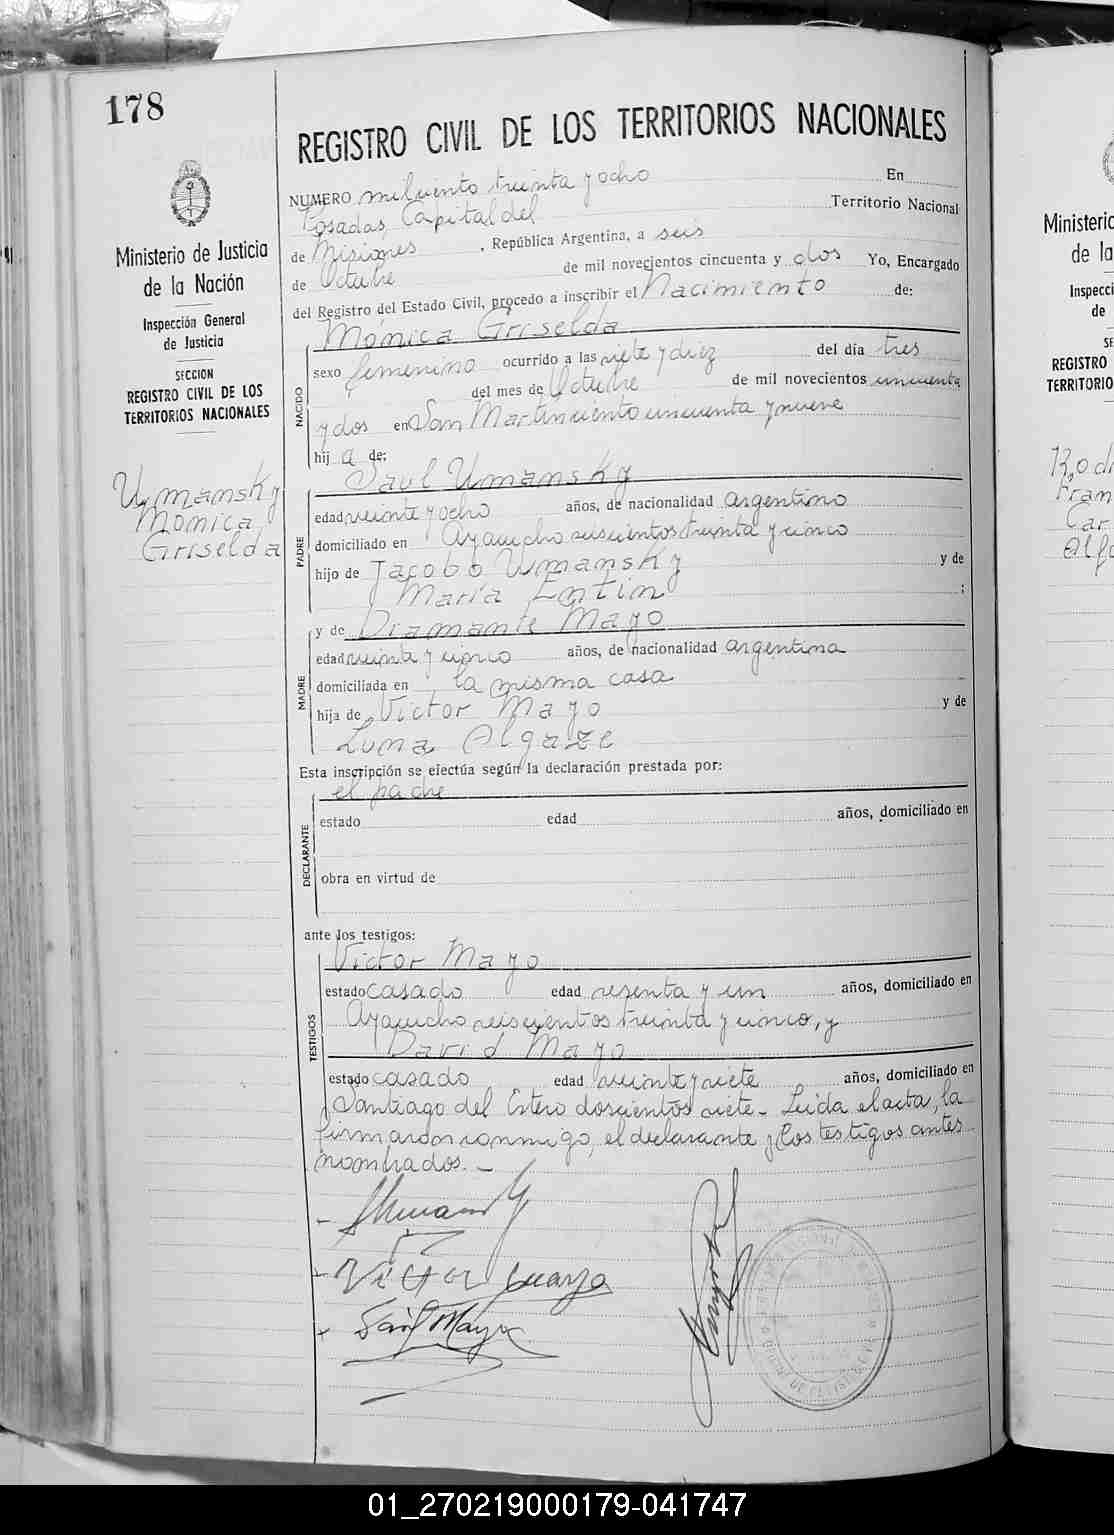 178
REGISTRO CIVIL DE LOS TERRITORIOS NACIONALES
Ministerio de Justicia
de la Nación
Inspección General
de Justicia
SECCION
REGISTRO CIVIL DE LOS
TERRITORIOS NACIONALES
Umansky
Mónica
Griselda
NUMERO mil ciento treinta y ocho En
Posadas Capital del Territorio Nacional
de Misiones, República Argentina, a seis
de Octubre de mil novecientos cincuenta y dos Yo, Encargado
del Registro del Estado Civil, procedo a inscribir el Nacimiento de:
Mónica Griselda
NACIDO
sexo femenino ocurrido a las siete y diez del día tres
del mes de Octubre de mil novecientos cincuenta
y dos en San Martin ciento cincuenta y nueve
hij a de:
Saul Umansky
PADRE
edad veinte y ocho años, de nacionalidad argentino
domiciliado en Ayacucho seiscientos treinta y cinco
hijo de Jacobo Umansky y de
María Entin ;
y de Diamante Mayo
MADRE
edad veinte y cinco años, de nacionalidad argentina
domiciliada en la misma casa
hija de Victor Mayo y de
Luna Algaze
Esta inscripción se efectúa según la declaración prestada por:
el padre
DECLARANTE
estado edad años, domiciliado en
obra en virtud de
ante los testigos:
Victor Mayo
TESTIGOS
estado casado edad sesenta y un años, domiciliado en
Ayacucho seiscientos treinta y cinco, y
David Mayo
estado casado edad veinte y siete años, domiciliado en
Santiago del Estero doscientos siete.- Leída el acta, la
firmaron conmigo, el declarante y los testigos antes
nombrados.-
Ministerio
de la
Inspecci
de
SE
REGISTRO
TERRITORIO
Rod
Fran
Car
Alfo
01_270219000179-041747